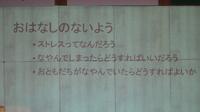 おはなしのないよう
・ストレスってなんだろう
・なやんでしまったらどうすればいいだろう
・おともだちがなやんでいたらどうすればよいか